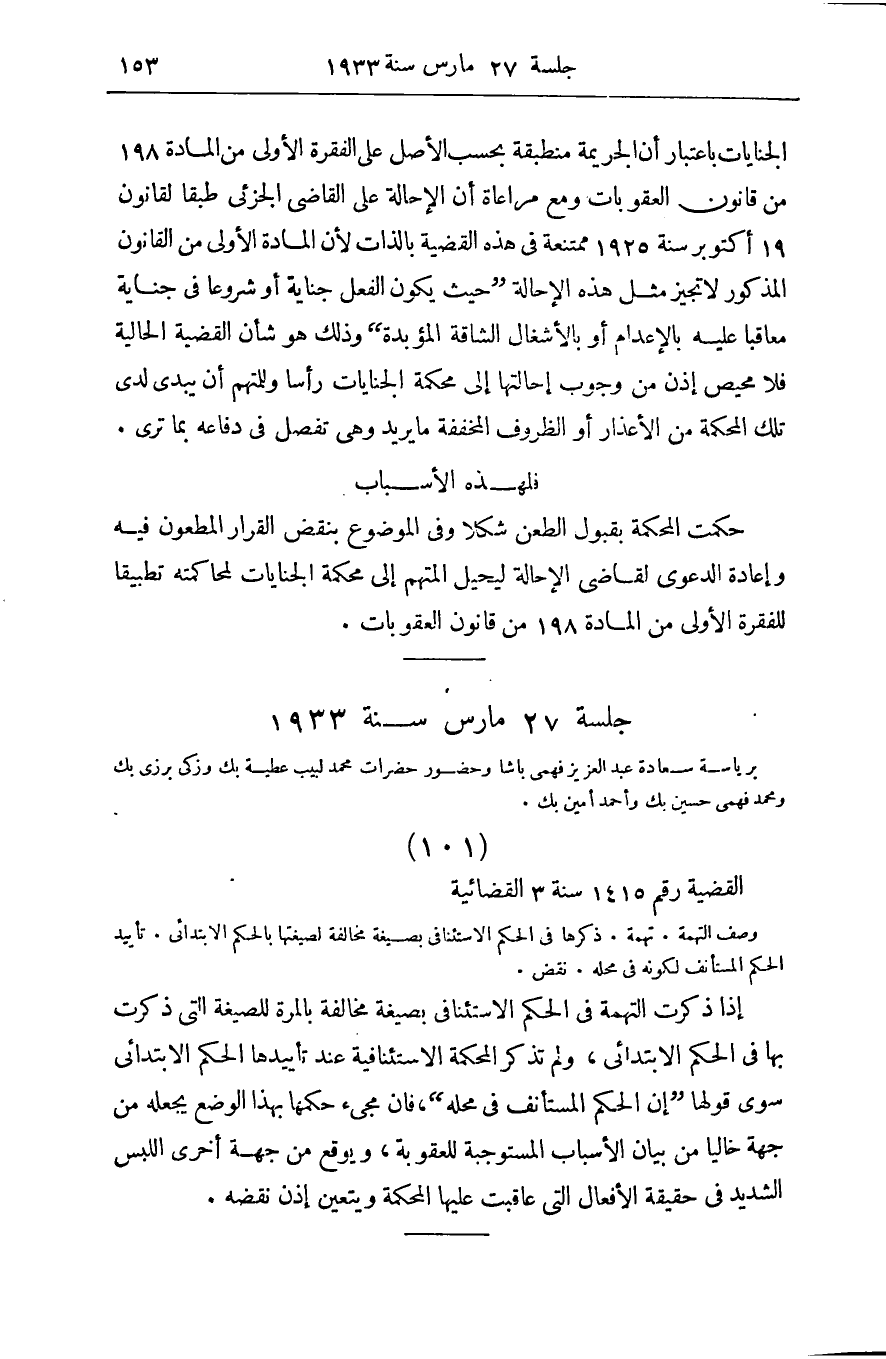 جلسة ٢٧ مارس سنة ١٩٣٣ ١٥٣
الجنايات باعتبار أن الجريمة منطبقة بحسب الأصل على الفقرة الأولى من المادة ١٩٨
من قانون العقوبات ومع مراعاة أن الإحالة على القاضى الجزئى طبقا لقانون
١٩ أكتوبر سنة ١٩٢٥ ممتنعة فى هذه القضية بالذات لأن المادة الأولى من القانون
المذكور لا تجيز مثل هذه الإحالة ”حيث يكون الفعل جناية أو شروعا فى جناية
معاقبا عليه بالإعدام أو بالأشغال الشاقة المؤبدة“ وذلك هو شأن القضية الحالية
فلا محيص إذن من وجوب إحالتها إلى محكمة الجنايات رأسا وللمتهم أن يبدى لدى
تلك المحكمة من الأعذار أو الظروف المخففة ما يريد وهى تفصل فى دفاعه بما ترى .
فلهذه الأسباب
حكمت المحكمة بقبول الطعن شكلا وفى الموضوع بنقض القرار المطعون فيه
وإعادة الدعوى لقاضى الإحالة ليحيل المتهم إلى محكمة الجنايات لمحاكمته تطبيقا
للفقرة الأولى من المادة ١٩٨ من قانون العقوبات .
جلسة ٢٧ مارس سنة ١٩٣٣
برياسة سعادة عبد العزيز فهمى باشا وحضور حضرات محمد لبيب عطية بك وزكى برزى بك
ومحمد فهمى حسين بك وأحمد أمين بك .
(١٠١)
القضية رقم ١٤١٥ سنة ٣ القضائية
وصف التهمة . تهمة . ذكرها فى الحكم الاستئنافى بصيغة مخالفة لصيغتها بالحكم الابتدائى . تأييد
الحكم المستأنف لكونه فى محله . نقض .
إذا ذكرت التهمة فى الحكم الاستئنافى بصيغة مخالفة بالمرة للصيغة التى ذكرت
بها فى الحكم الابتدائى ، ولم تذكر المحكمة الاستئنافية عند تأييدها الحكم الابتدائى
سوى قولها ”إن الحكم المستأنف فى محله“، فان مجىء حكمها بهذا الوضع يجعله من
جهة خاليا من بيان الأسباب المستوجبة للعقوبة ، ويوقع من جهة أخرى اللبس
الشديد فى حقيقة الأفعال التى عاقبت عليها المحكمة ويتعين إذن نقضه .